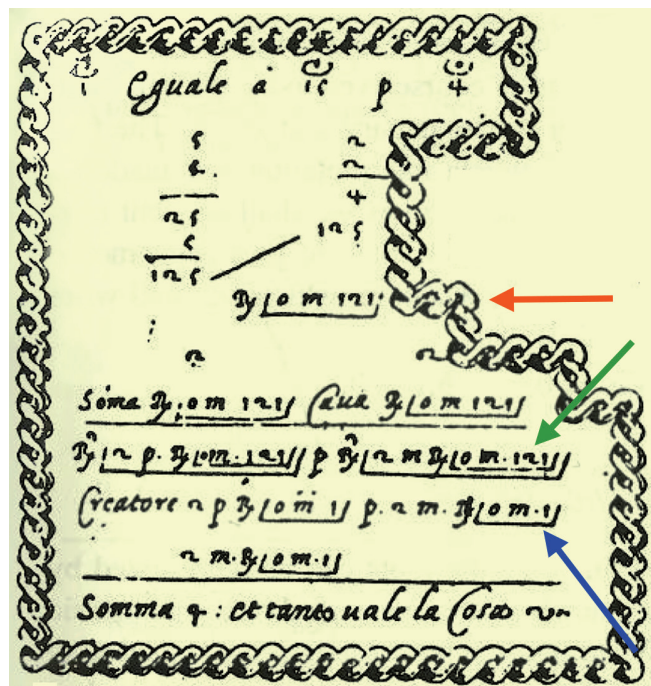 1 Eguale à 15 p 4
5 2
5. 2
25 4
5 125
125
R⌊0 m 121⌋
2 2
Soma R⌊0 m 121⌋ Caua R⌊0 m 121⌋
R⌊2 p. R⌊0 m. 121⌋⌋ p R⌊2 m R⌊0 m. 121⌋⌋
Creatore 2 p R⌊0 m 1⌋ p. 2 m. R⌊0 m. 1⌋
2 m. R⌊0 m. 1⌋
Somma 4 : et tanto uale la Cosa